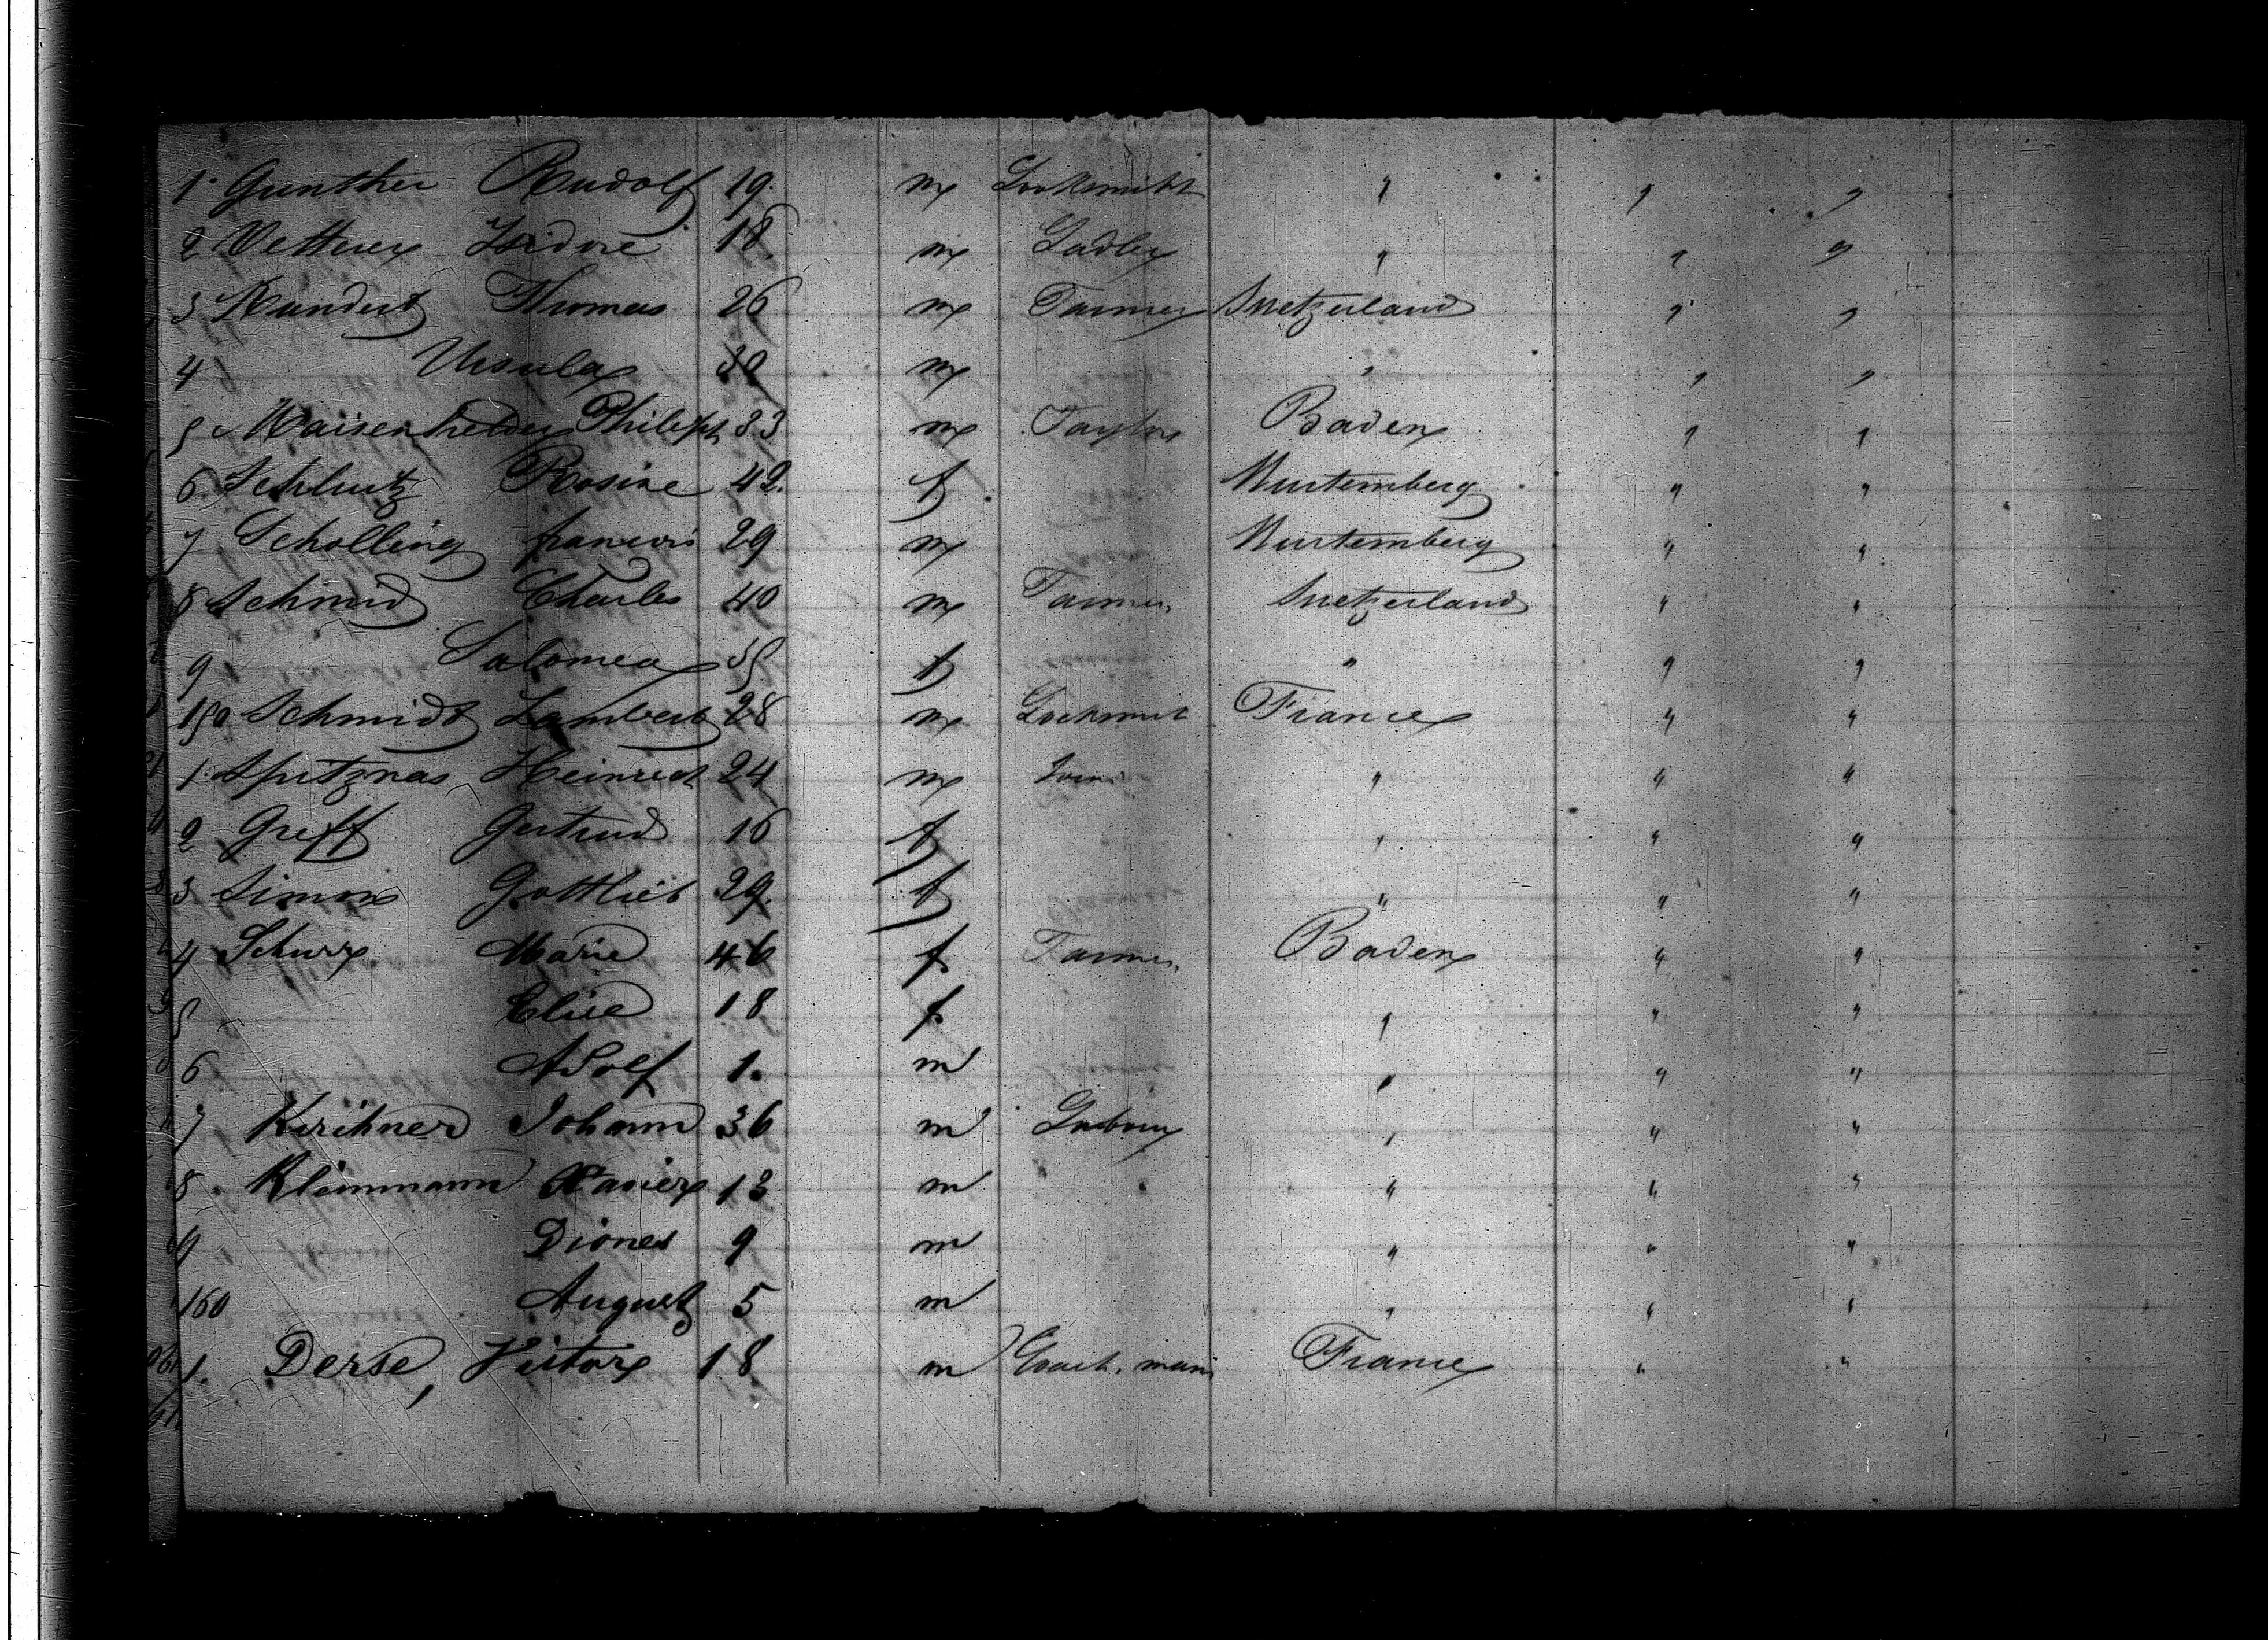 1. Gunther Rudolf 19. m Locksmith " " "
2 Vetterer Isidore 18. m Sadler " " "
3 Kundert Thomas 26 m Farmer Swetzerland " "
4 Ursula 30 m " " "
5 Waisenhelder Philipp 33 m Taylor Baden " "
6. Schlutz Rosine 42. f Wurtemberg " "
7 Scholling francois 29 m Wurtemberg " "
8 Schmid Charles 40 m Farmer Swetzerland " "
9 Salomea 35 f " " "
150 Schmidt Lambert 28 m Locksmit France " "
1. Spitznas Heinrich 24 m " " "
2 Greff Gertrud 16 f " " "
3 Simon Gottlieb 29. f " " "
4 Schurr Marie 46 f Farmer Baden " "
5 Elise 18 f " " "
6 Adolf 1. m " " "
7 Kirchner Johann 36 m " " "
8 Kleinmann Xavier 13 m " " "
9 Diones 9 m " " "
160 August 5 m " " "
1. Derse, Victor 18 m Coach. man France " "